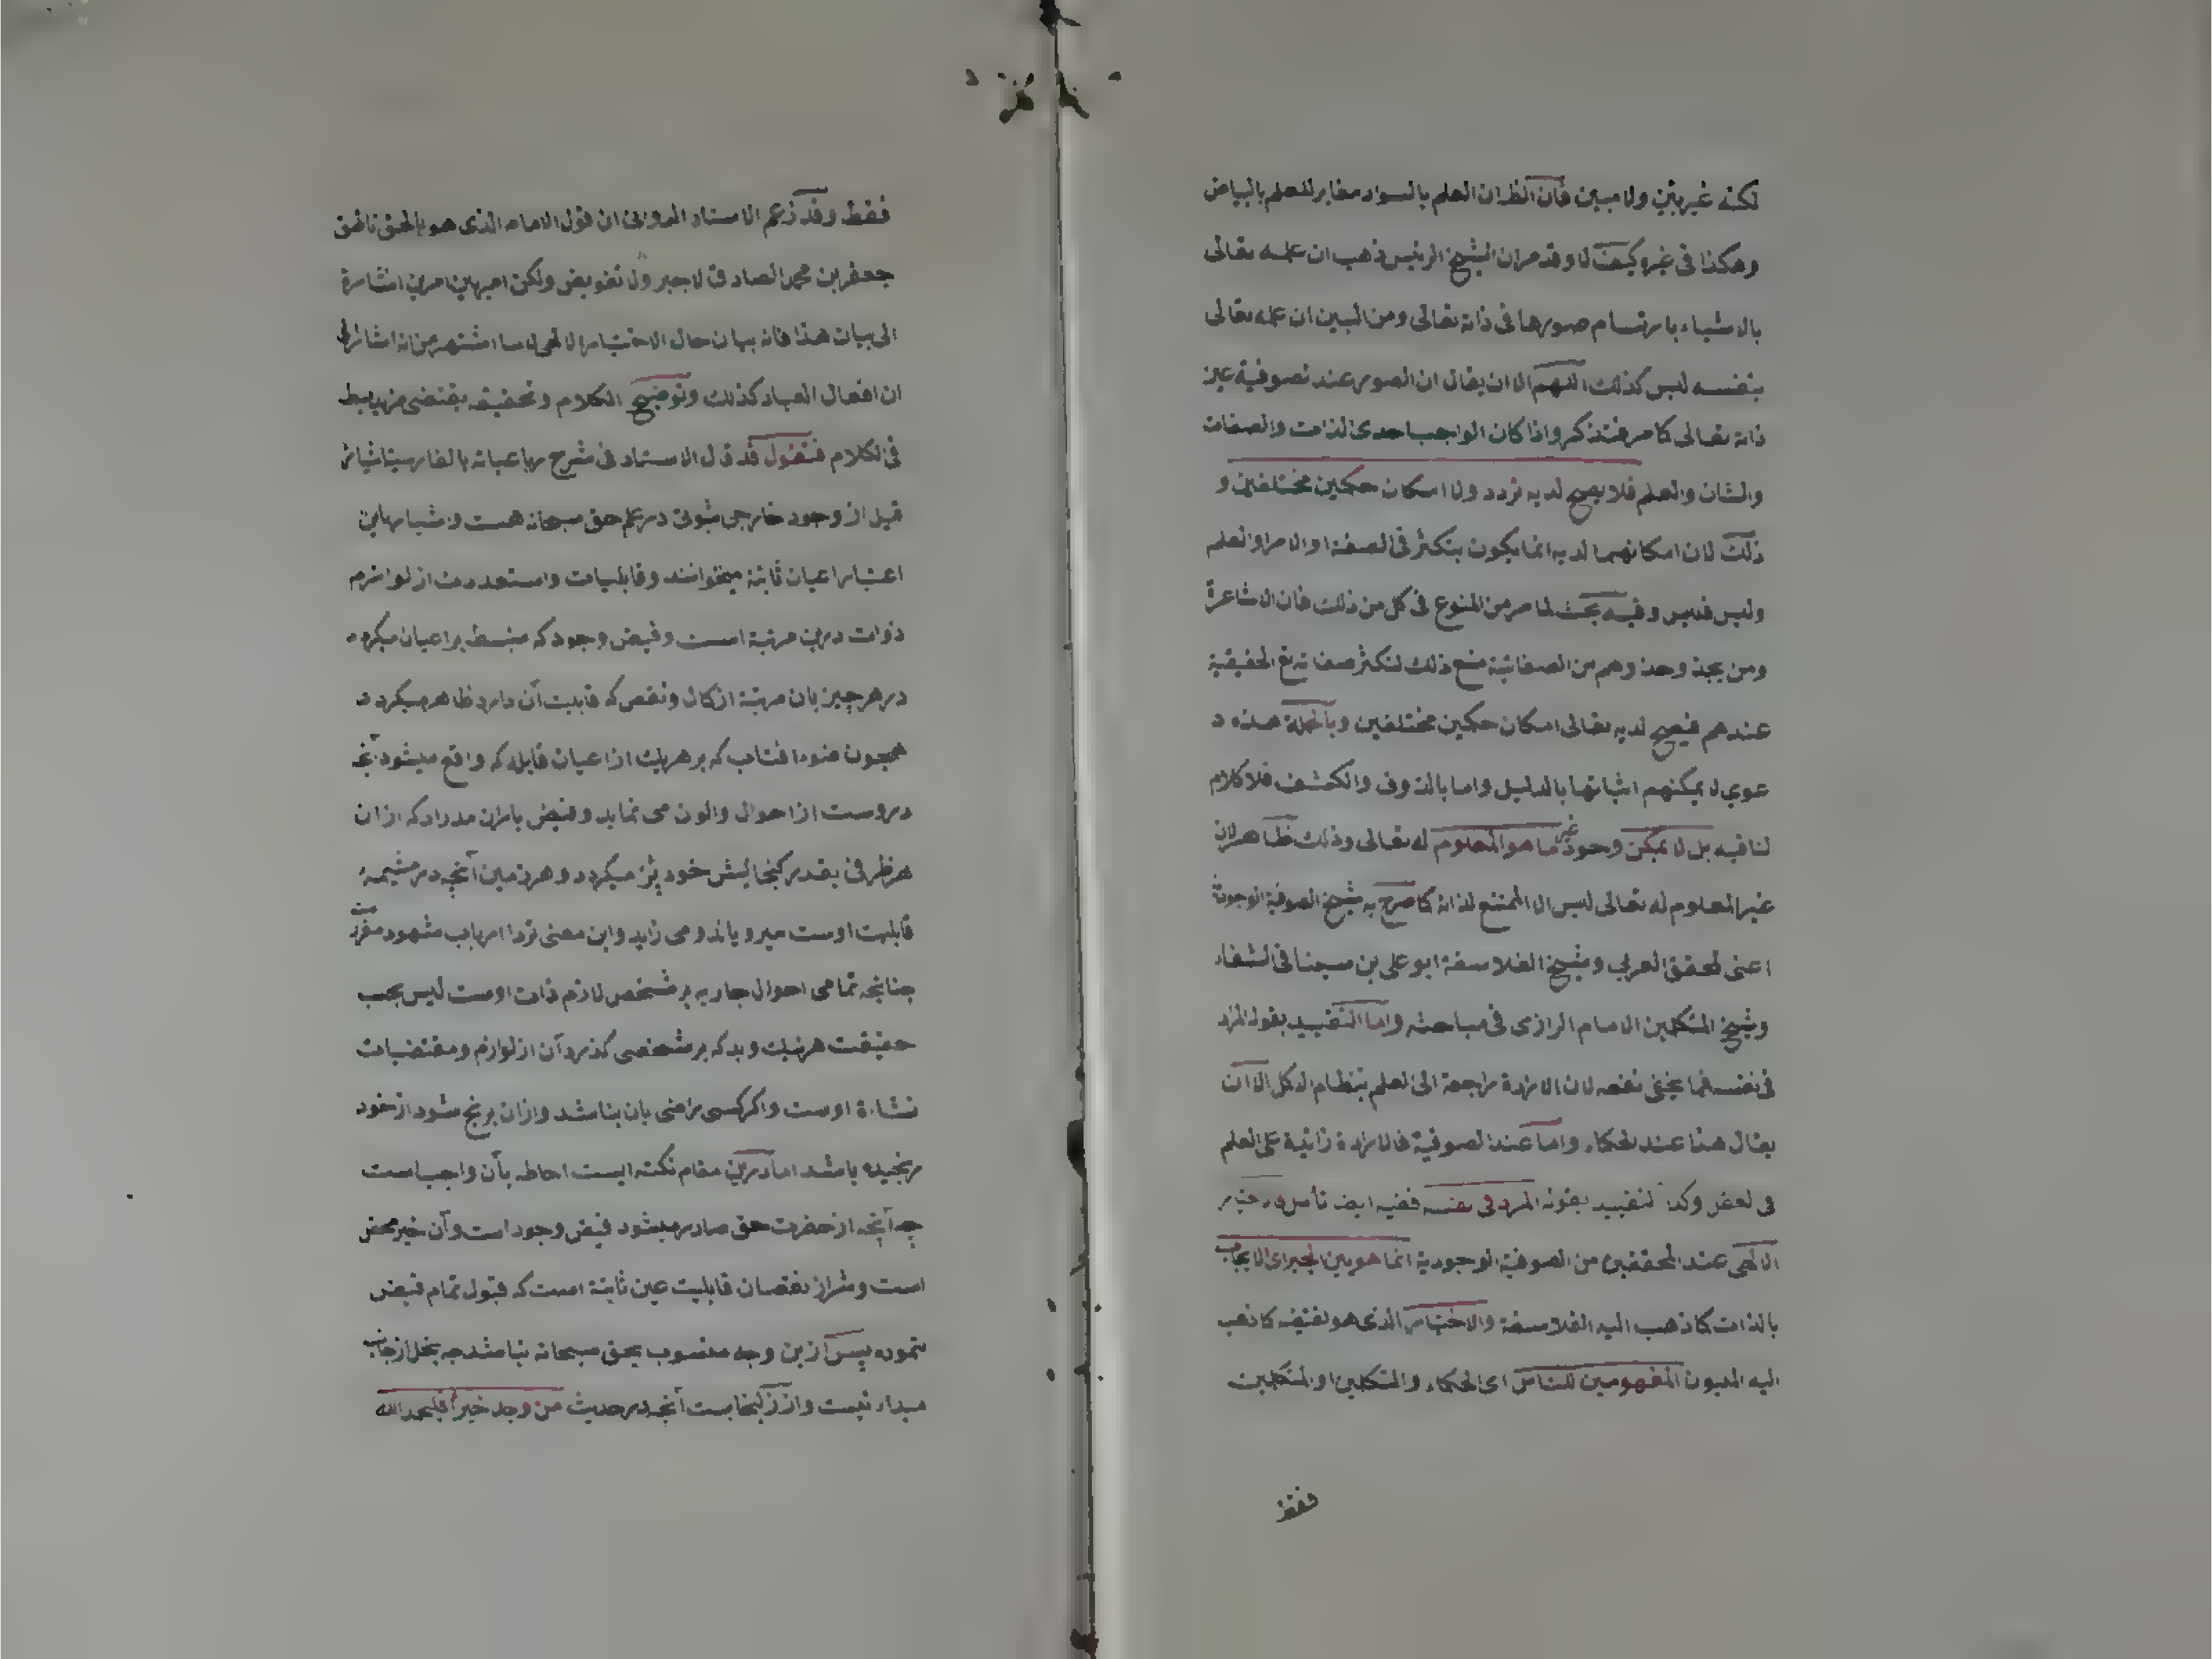 لكنه غير بيّن ولا مبين فان الظ ان العلم بالسواد مغاير للعلم بالبياض
وهكذا فى غيره كيف لا وقد مر ان الشيخ الرئيس ذهب ان علمه تعالى
بالاشياء بارتسام صورها فى ذاته تعالى ومن البين ان علمه تعالى
بنفسه ليس كذلك اللهم الا ان يقال ان الصور عند الصوفية عين
ذاته تعالى كما مر فتذكر واذا كان الواجب احدى الذات والصفات
والشان والعلم فلا يصح لديه تردد ولا امكان حكمين مختلفين و
ذلك لان امكانهما لديه انما يكون بتكثر فى الصفة او الامر او العلم
وليس فليس وفيه بحث لما مر من المنوع فى كل من ذلك فان الاشاعرة
ومن يحذو حذوهم من الصفاتية منع ذلك لتكثر صفاته تع الحقيقية
عندهم فيصح لديه تعالى امكان حكمين مختلفين وبالجملة هذه د
عوي لا يمكنهم اثباتها بالدليل واما بالذوق والكشف فلا كلام
لنا فيه بل لا يمكن وجود غير ما هو المعلوم له تعالى وذلك ظاهر لان
غير المعلوم له تعالى ليس الا الممتنع لذاته كما صرح به شيخ الصوفية الوجودية
اعنى المحقق العربي وشيخ الفلاسفة ابو على بن سينا فى الشفاء
وشيخ المتكلمين الامام الرازى فى مباحثه واما التقييد بقوله المراد
فى نفسه فما يخفى نقصه لان الارادة راجعة الى العلم بنظام الكل الا ان
يقال هذا عند الحكماء واما عند الصوفية فالارادة زائدة على العلم
فى لعقل وكذا لتقييد بقوله المرد فى نفسه ففيه ايضا تأمل
الالهى عند المحققين من الصوفية الوجودية انما هو بين الجبر اى الايجاب
بالذات كما ذهب اليه الفلاسفة والاختيار الذى هو نقيضه كما ذهب
اليه المليون المفهومين للناس اى الحكماء والمتكلمين او المتكلمين
فقط
فقط وقد زعم الاستاد الدوانى ان قول الامام الذى هو بالحق ناطق
جعفر بن محمد الصادق لا جبر ولا تفويض ولكن امر بين امرين اشارة
الى بيان هذا فانه بيان حال الاختيار الالهى لا ما اشتهر من انه اشارة الى
ان افعال العباد كذلك وتوضيح الكلام وتحقيقه يقتضى مزيد بسط
فى الكلام فنقول قد قال الاستاد فى شرح رباعياته بالفارسية اشيا را
قبل از وجود خارجى ثبوتى در علم حق سبحانه هست واشيا را باين
اعتبار اعيان ثابته ميخوانند وقابليات واستعدادات از لوازم
ذوات درين مرتبة است وفيض وجود كه منبسط بر اعيان ميكردد
در هر چيز بان مرتبة از كمال ونقص كه قابليت آن دارد ظاهر ميكردد
همچون ضوء افتاب كه بر هريك از اعيان قابله كه واقع ميشود آنچه
در وست از احوال والوان مى نمايد وفيض باران مدرار كه از ان
هر ظرفى بقدر كنجايش خود پر ميكردد وهر زمين آنچه در مشيمهء
قابليت اوست ميروياند ومى زايد واين معنى نزد ارباب شهود مقرر ست
چنانچه تمامى احوال جاريه بر شخص لازم ذات اوست ليس بحسب
حقيقت هر نيك وبد كه بر شخصى كذرد آن از لوازم ومقتضيات
نشاءة اوست واكر كسى راضى بان نباشد وازان برنج شود از خود
رنجيده باشد اما درين مقام نكته ايست احاطه بآن واجب است
چه آنچه از حضرت حق صادر ميشود فيض وجود است وآن خير محض
است وشر از نقصان قابليت عين ثابتة است كه قبول تمام فيض
ننموده پس ازين وجه منسوب بحق سبحانه نباشد چه بخل از جانب
مبداء نيست واز اينجاست آنچه در حديث من وجد خيراً فليحمد الله